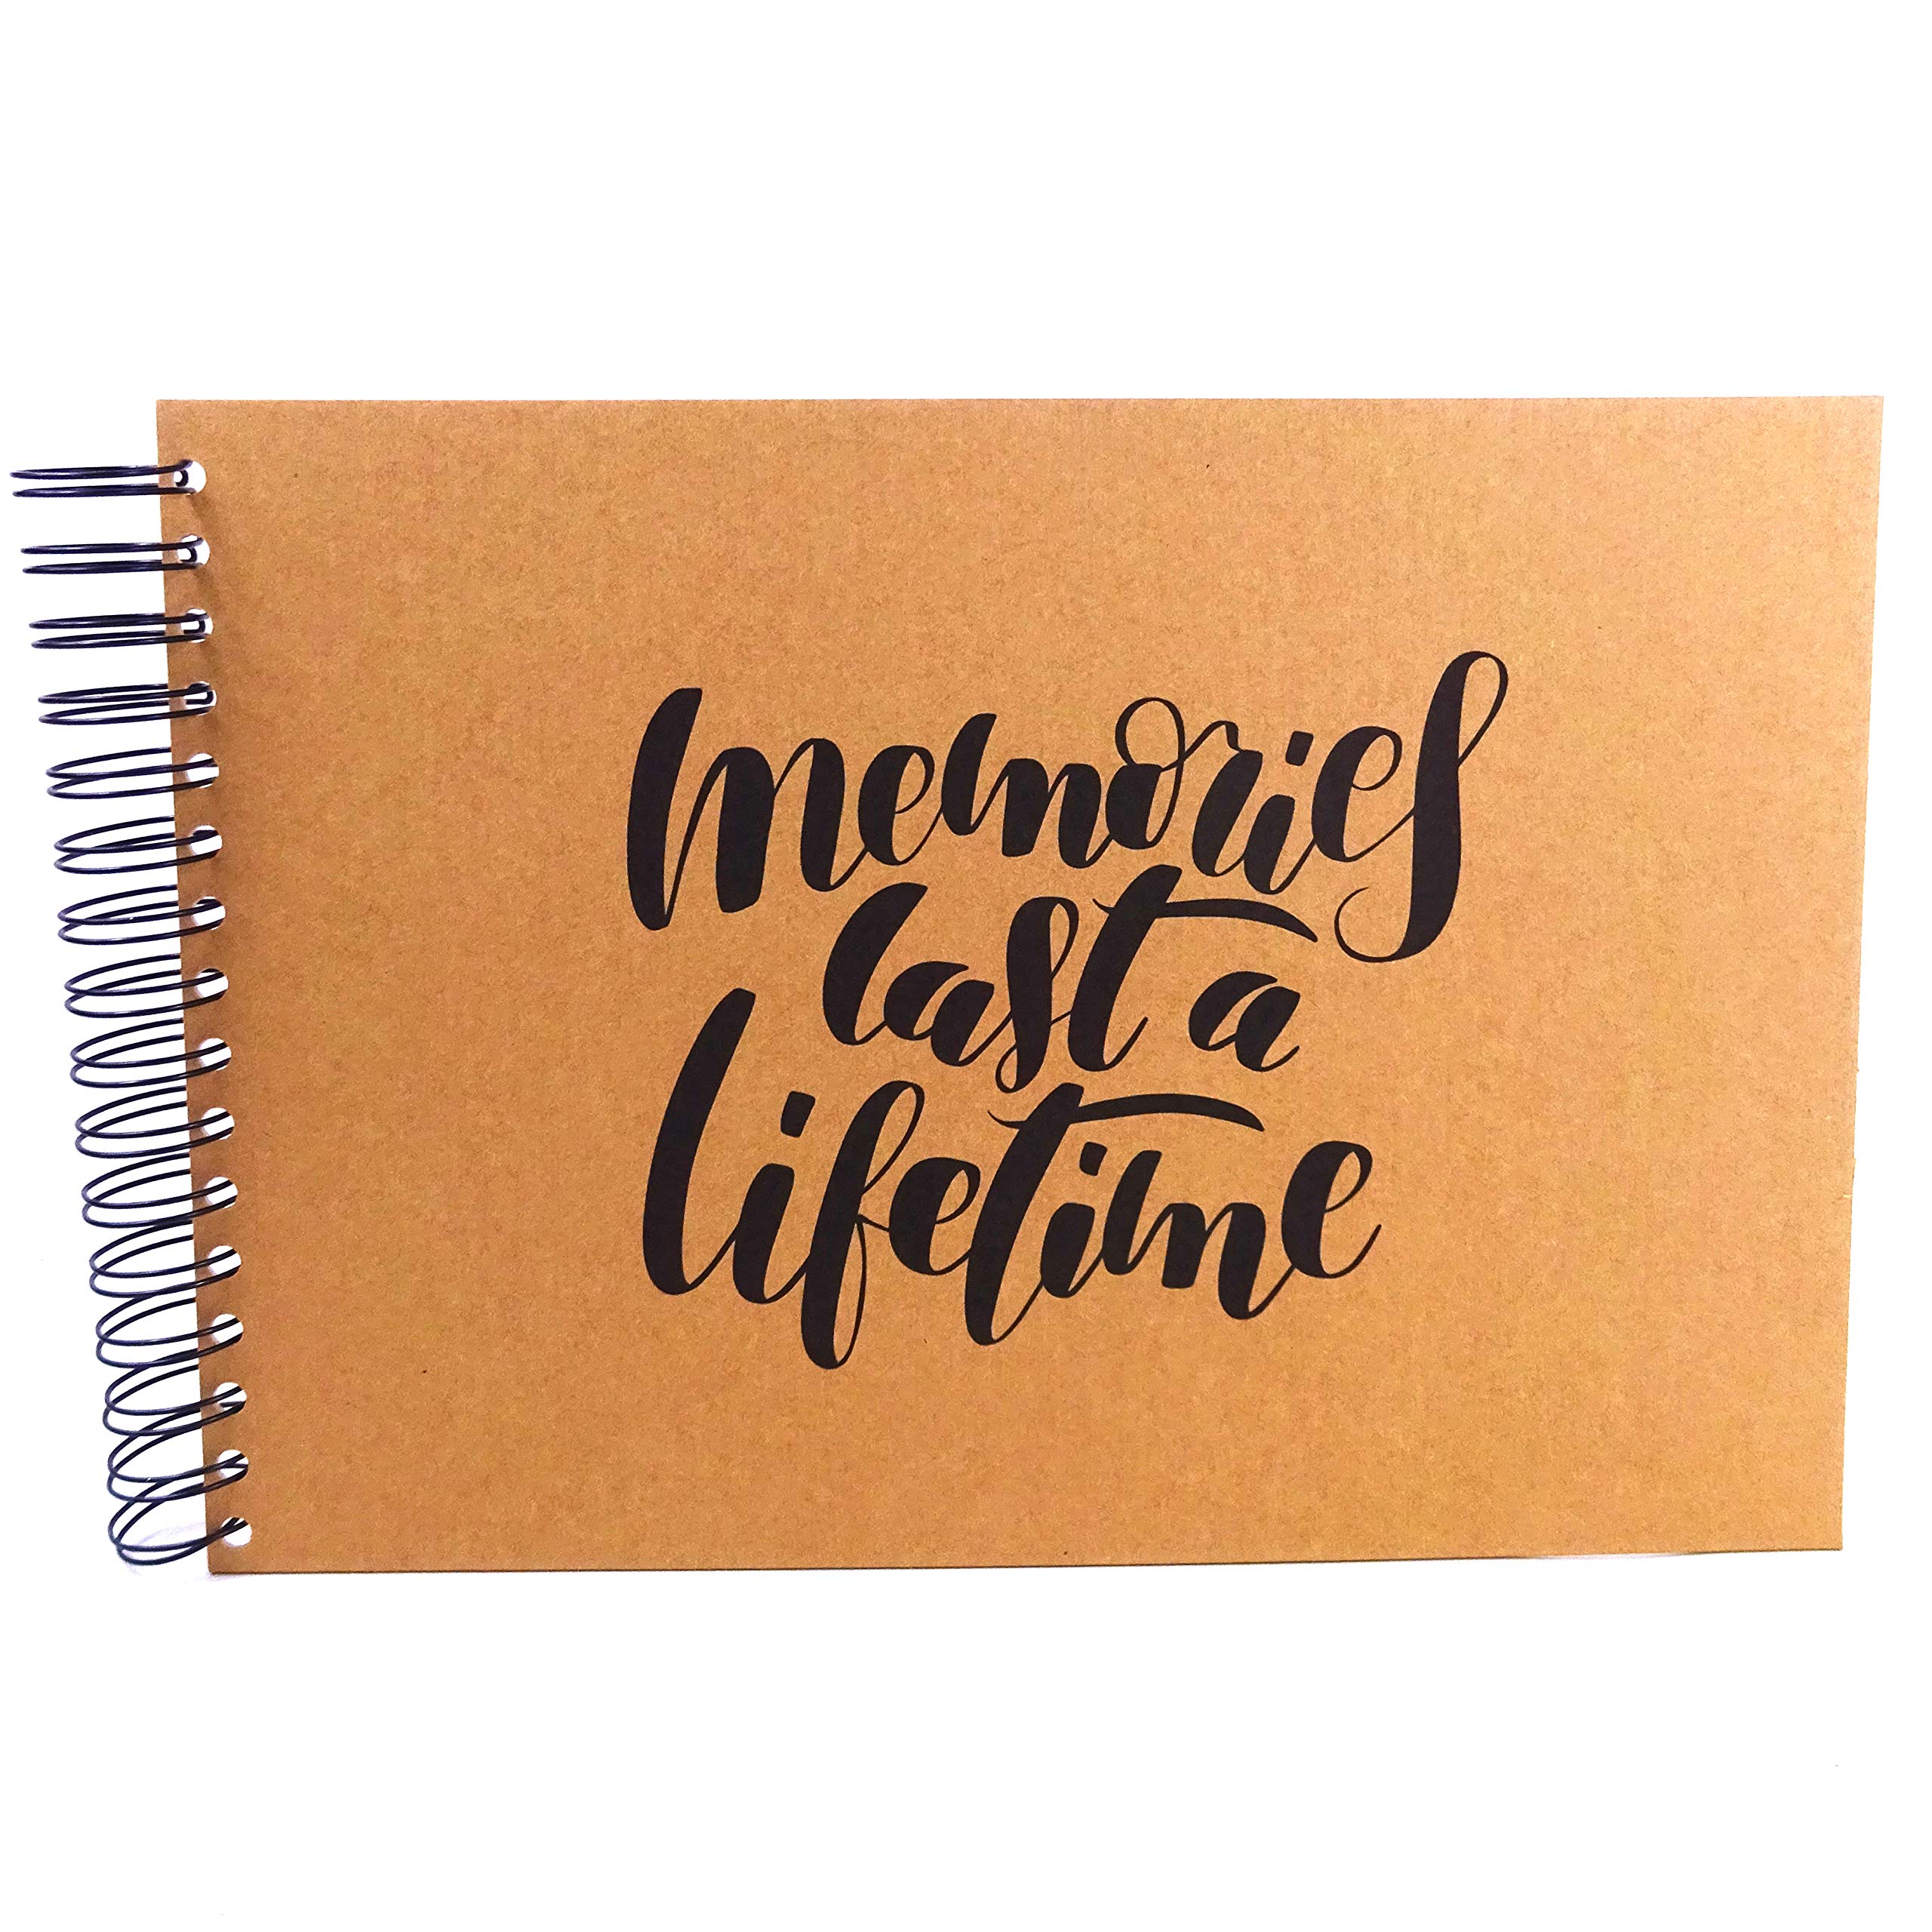 memories
last a
lifetime